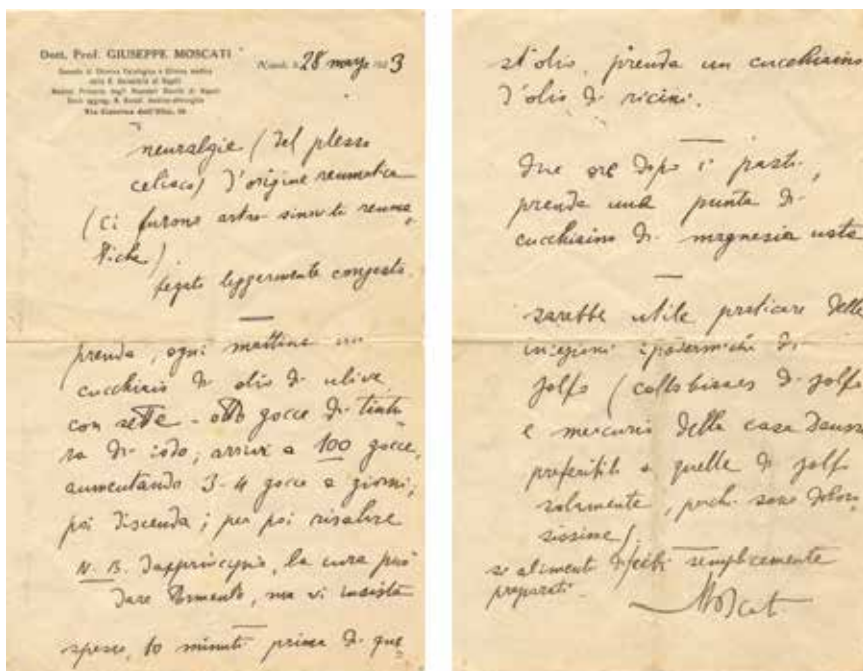 Dott. Prof. GIUSEPPE MOSCATI
Docente di Chimica Fisiologica e Clinica medica
nella R. Università di Napoli
Medico Primario degli Ospedali Riuniti di Napoli
Via Cisterna dell'Olio, 10
Napoli, li 28 1923
neuralgie (del plesso
celiaco) d'origine reumatica
(ci furono artro-sinoviti reuma,
tiche)
fegato leggermente congesto.
prenda, ogni mattina un
cucchiaio di olio di ulive
con sette - otto gocce di tintu
ra di iodo; arrivi a 100 gocce,
aumentando 3-4 gocce a giorni,
poi discenda; per poi risalire
N. B. Dapprincipio, la cura può
dare tormento, ma vi insista
spesso, 10 minuti prima di que
st'olio, prenda un cucchiaino
d'olio di ricini.
due ore dopo i pasti,
prenda una punta di
cucchiaino di magnesia usta
sarebbe utile praticare delle
iniezioni ipodermiche di
solfo (di solfo
e mercurio della casa
preferibili a quelle di solfo
solamente, perché sono doloro,
sissime).
si alimenti di cibi semplicemente
preparati.
Moscati